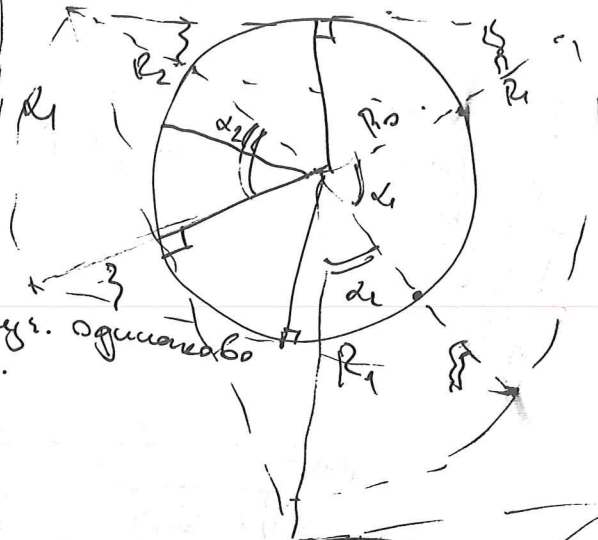 R₂
R₁
α₁
α₂
R₀
α₁
α₁
одинаково
R₁